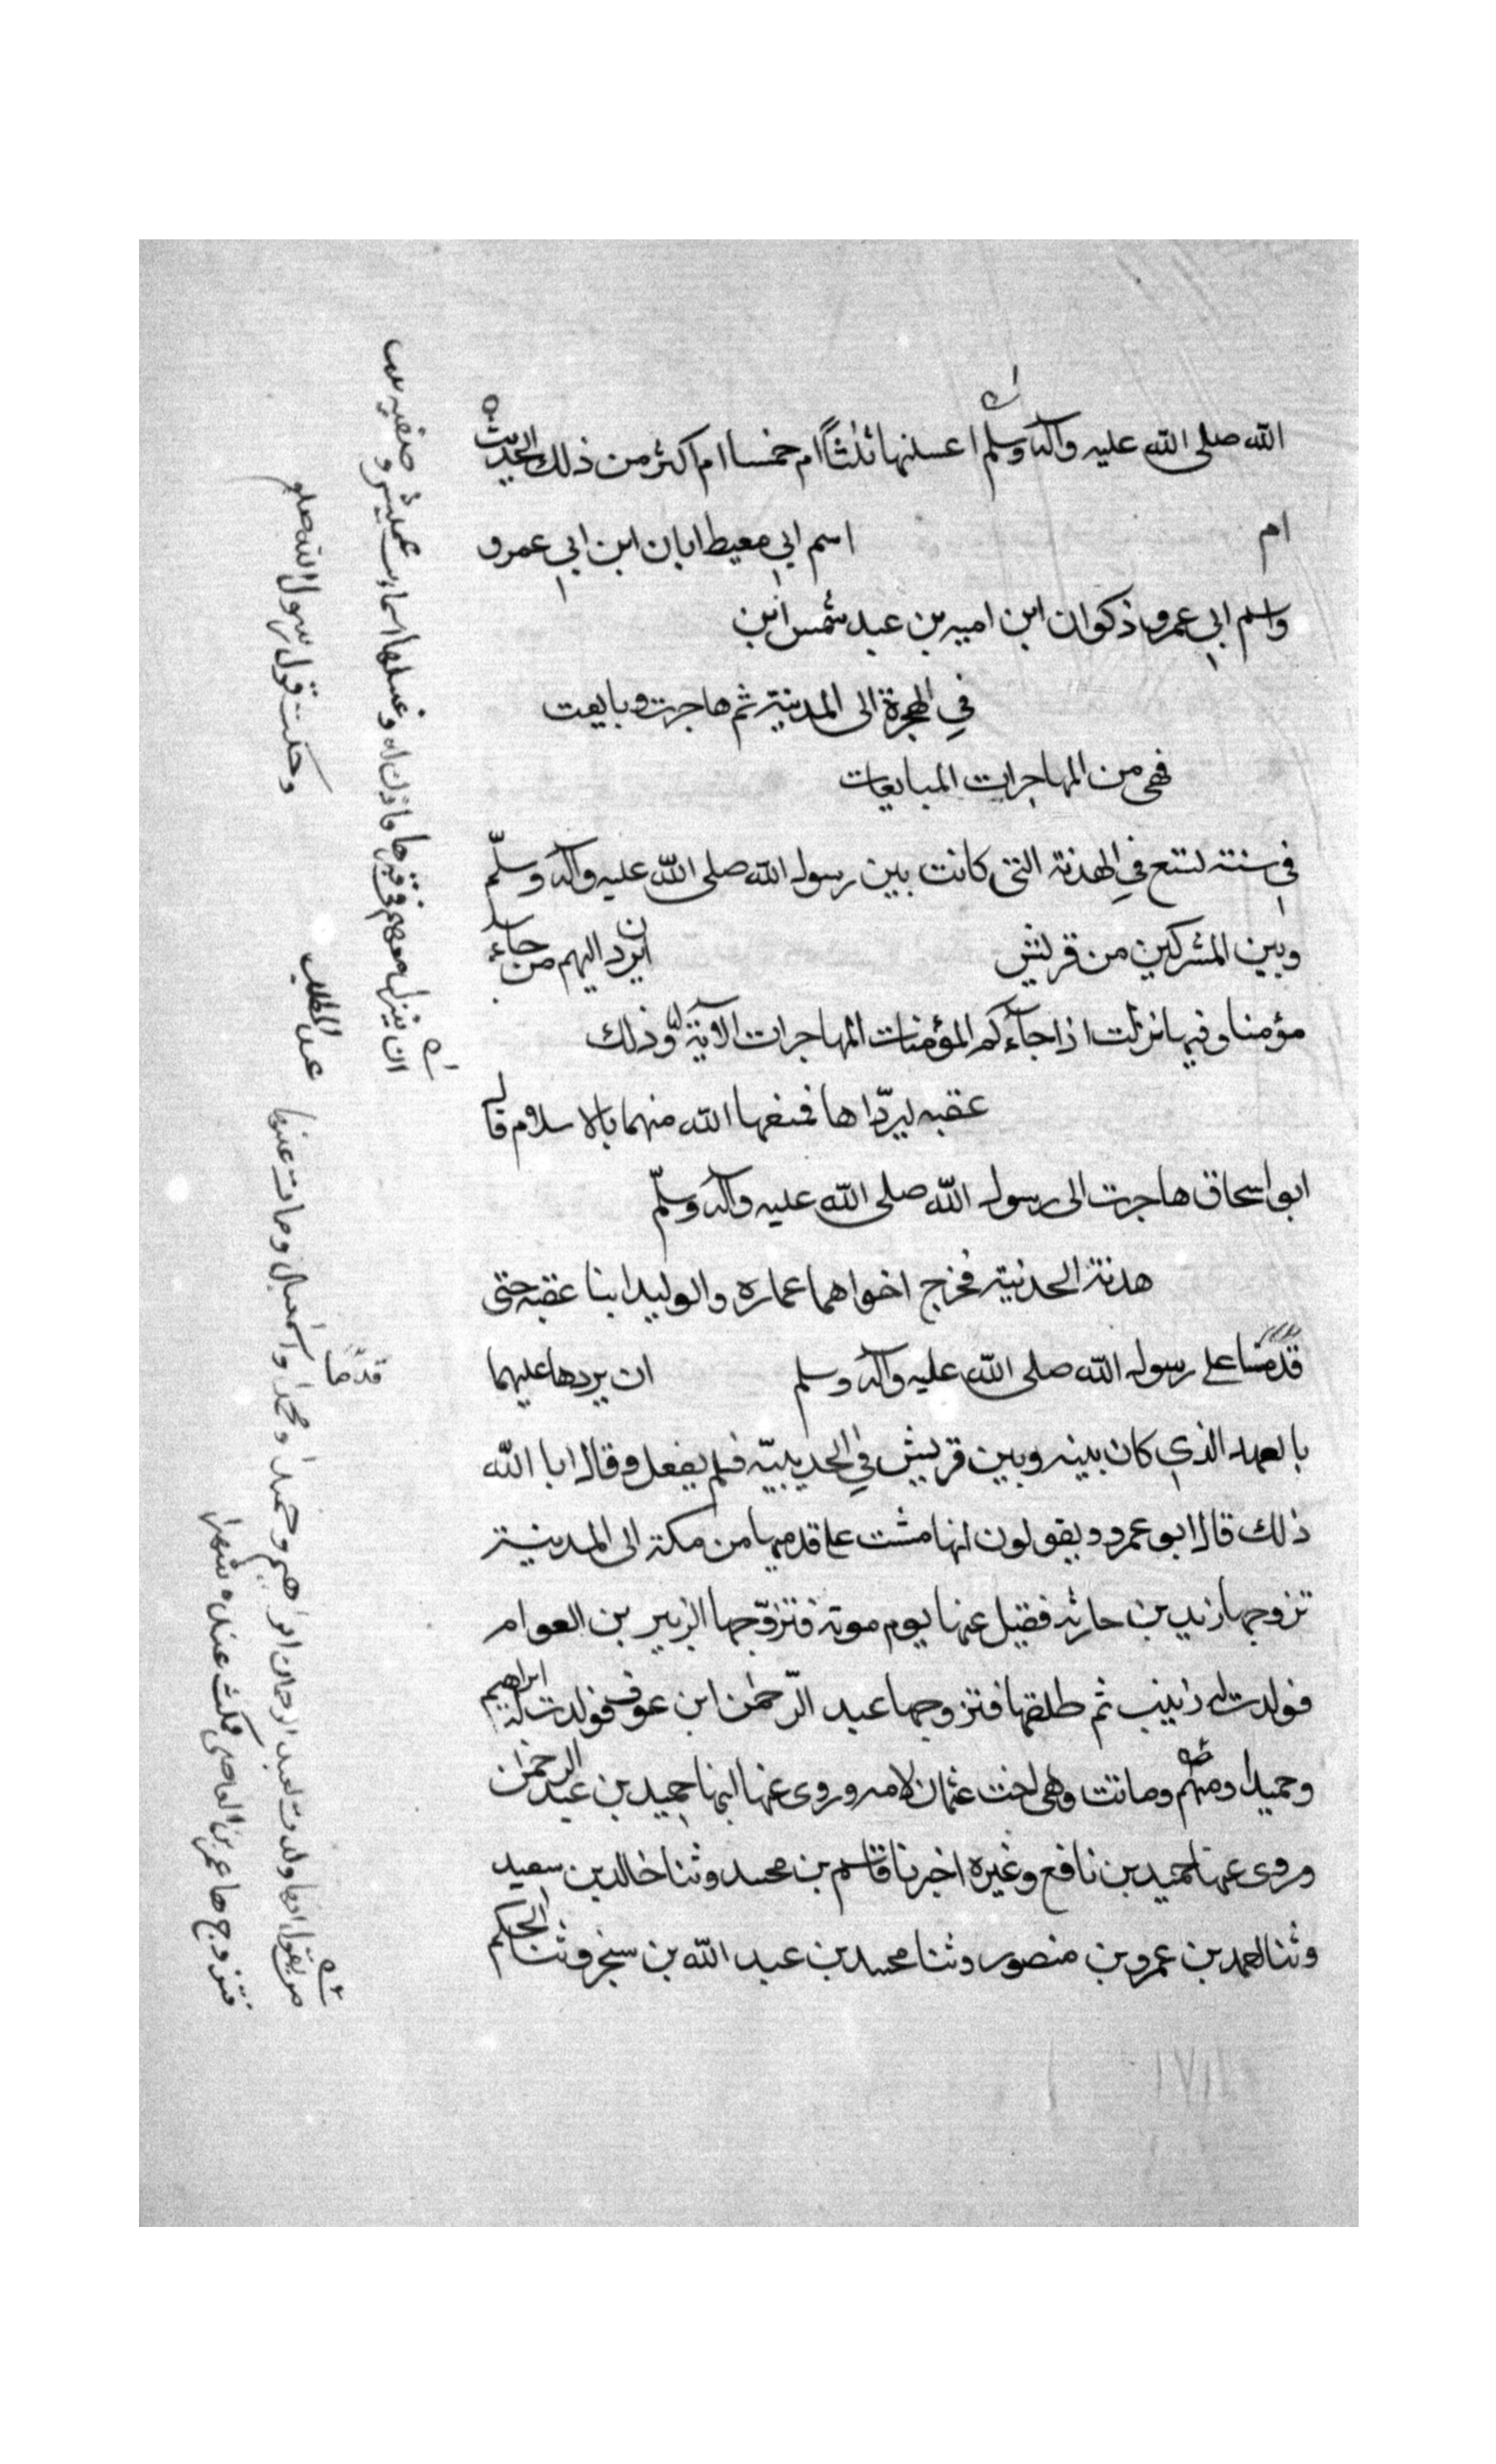 الله صلى الله عليه وآله وسلم اغسلنها ثلثاً ام خمسا ام اكثر من ذلك الحديث
ام اسم ابي معيط ابان ابن ابي عمرو
واسم ابي عمرو ذكوان ابن اميه بن عبد شمس ابن
في الهجرة الى المدينة ثم هاجرت وبايعت
فهى من المهاجرات المبايعات
في سنة سبع في الهدنة التى كانت بين رسول الله صلى الله عليه وآله وسلّم
وبين المشركين من قريش ان يرد اليهم من جاء
مؤمنا وفيها نزلت اذا جآءكم المؤمنات المهاجرات الآية وذلك
عقبه ليردّاها فمنعها الله منهما بالاسلام قال
ابو اسحاق هاجرت الى رسول الله صلى الله عليه وآله وسلّم
هدنة الحديبية فخرج اخواهما عماره والوليد ابنا عقبه حتى
قدما على رسول الله صلى الله عليه وآله وسلم ان يردها عليهما
بالعهد الذي كان بينه وبين قريش في الحديبيّة فلم يفعل وقال ابا الله
ذلك قال ابو عمرو ويقولون انها مشت على قدميها من مكة الى المدينة
تزوجها زيد بن حارثه فقتل عنها يوم موته فتزوّجها الزبير بن العوام
فولدت له زينب ثم طلقها فتزوجها عبد الرّحمٰن ابن عوف فولدت له ابراهيم
وحميدا ومنهم وماتت وهى اخت عثمان لامه وروى عنها ابنها حميد بن عبد الرحمٰن
وروى عنها حميد بن نافع وغيره اخبرنا قاسم بن محمد وثنا خالد بن سعيد
وثنا احمد بن عمرو بن منصور وثنا محمد بن عبد الله بن سنجر وثنا الحكم
وصفيه بنت
عميس وغسلها اسماء بنت
ان ينزل معهم في قبرها فاذن له
وحكت قول رسول الله صلو
عبد المطلب
قدما
من يقول انها ولدت لعبد الرحمان ابراهيم وحميدا ومحمدا واسمعيل ومات عنها
فتزوجها عمرو بن العاص فمكثت عنده شهرا